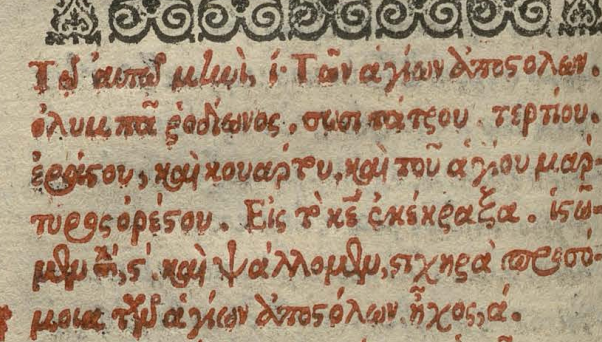 Τοῦ αὐτοῦ μηνὸς, ι. Τῶν ἁγίων ἀποστόλων.
ὀλυμπᾶ ῥοδίωνος, σωσιπάτρου. τερτίου.
ἐράστου, καὶ κουάρτου, καὶ τοῦ ἁγίου μάρ-
τυρος ὀρέστου. Εἰς τὸ κε ἐκέκραξα. ἱστῶ-
μεν στί, ς καὶ ψάλλομεν, στιχηρὰ προσό-
μοια τῶν ἁγίων ἀποστόλων ἦχος, ά.